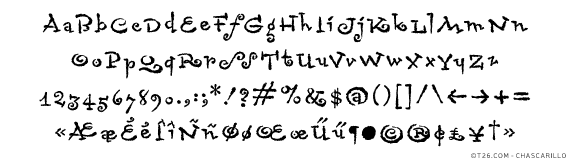 AaBbCcDdEeFfGgHhIiJjKkLlMmNn
OoPpQqRrSsTtUuVvWwXxYyZz
1234567890.,:;*!?#%&$@()[]/\←→+=
«ÆæÉéÎîÑñØøŒœŰű¶●©®¢£¥†»
©T26.COM - CHASCARILLO